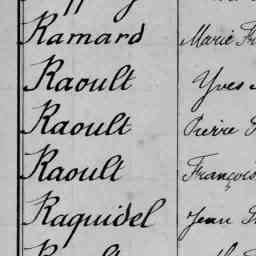 Ramard Marie
Raoult Yves
Raoult Pierre
Raoult François
Raquidel Jean